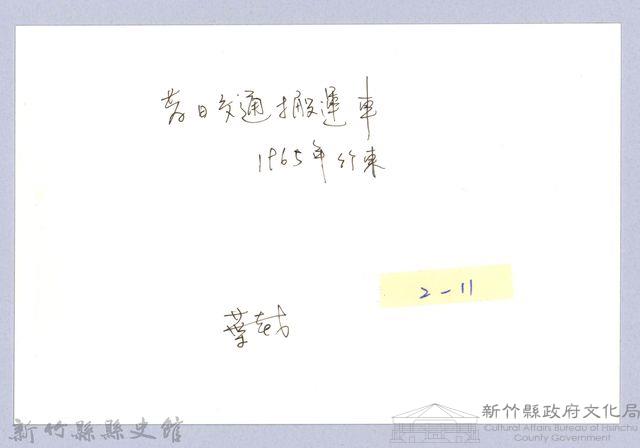 昔日交通搬運車
1965年竹東
2-11
葉
新竹縣縣史館
新竹縣政府文化局
Cultural Affairs Bureau of Hsinchu
County Government